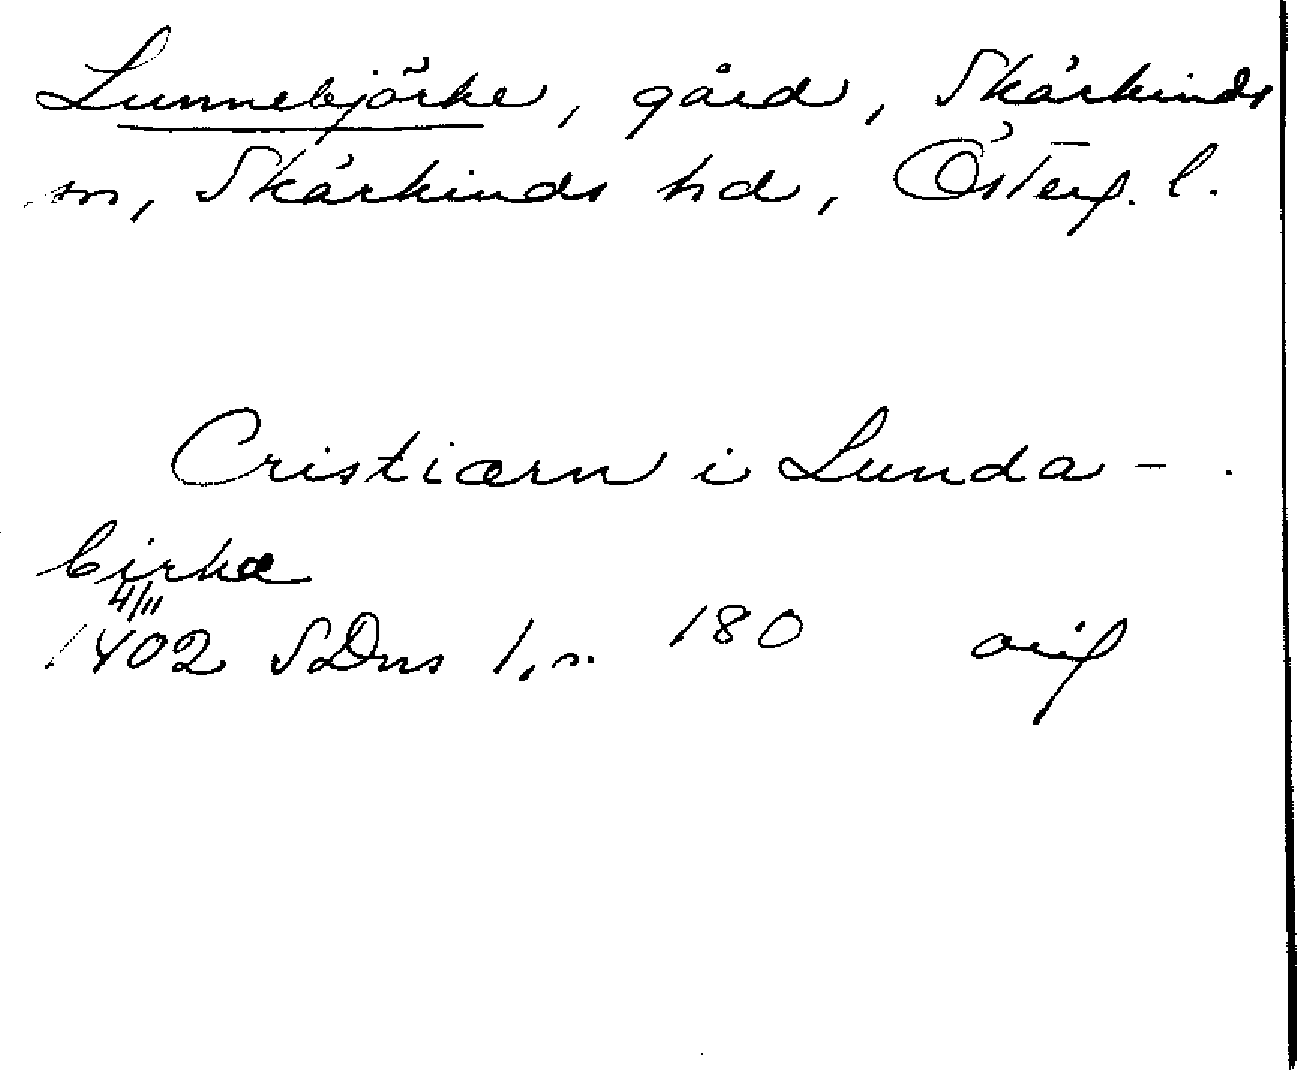 Lunnebjörke, gård, Skärkinds
sn, Skärkinds hd, Österg. l.
Cristiærn i Lunda-
birkæ
4/11
1402 SDns 1, s. 180 orig